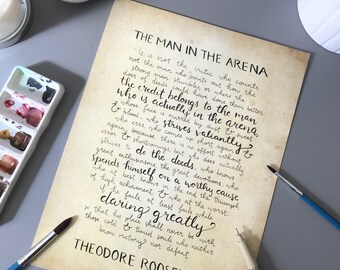 THE MAN IN THE ARENA
It is not the critic who counts
not the man who points out how the
strong man stumbles or where the
doer of deeds could have done them better
the credit belongs to the man
who is actually in the arena
whose face is marred by dust & sweat
& blood who strives valiantly
who errs who comes up short again &
again because there is no effort without
error & shortcoming but who does actually
strive to do the deeds who knows
great enthusiasms the great devotions who
spends himself on a worthy cause
who at best knows in the end the triumph
of high achievement & who at the worst
if he fails at least fails while
daring greatly
so that his place shall never be with
those cold & timid souls who neither
know victory nor defeat
THEODORE ROOSE